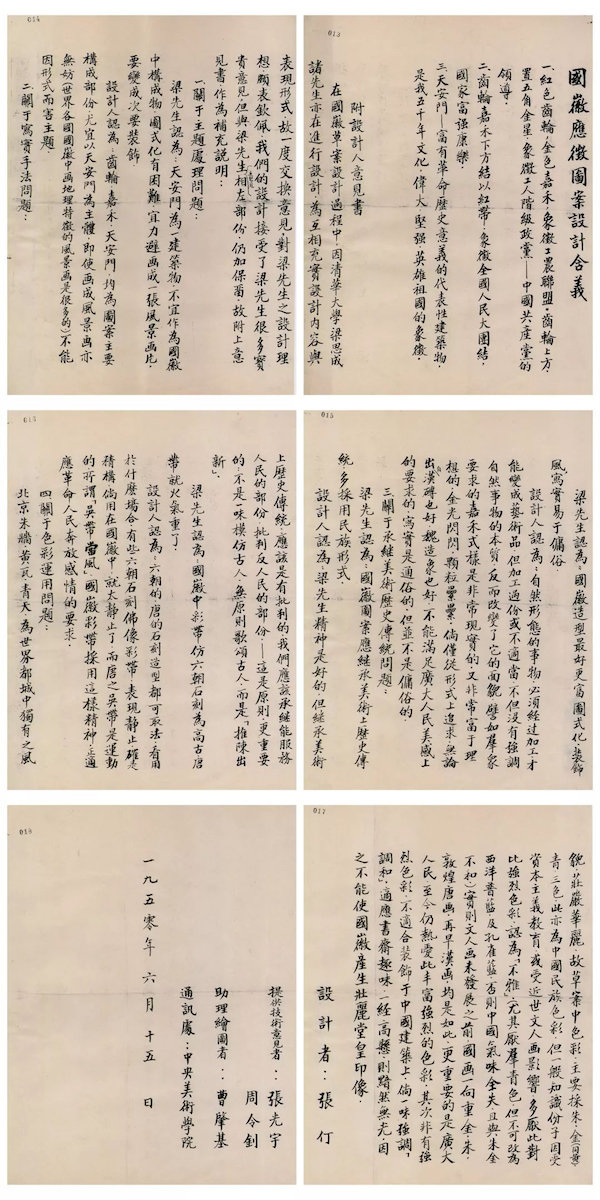 013
國徽應徵圖案設計含義
一、紅色齒輪，金色嘉禾，象徵工農聯盟。齒輪上方，
置五角金星，象徵工人階級政黨——中國共產黨的
領導。
二、齒輪嘉禾下方結以紅帶，象徵全國人民大團結，
國家富强康樂。
三、天安門——富有革命歷史意義的代表性建築物，
是我五千年文化，偉大堅强，英雄祖國的象徵。
附設計人意見書
在國徽草案設計過程中，因清華大學梁思成
諸先生亦在進行設計，為互相充實設計內容與
014
表現形式，故一度交換意見，對梁先生之設計理
想，願表欽佩，我們的設計接受了梁先生很多寶
貴意見，但與梁先生相左部份，仍加保畱，故附上意
見書作為補充說明：
一、關于主題處理問題：
梁先生認為：天安門為一建築物，不宜作為國徽
中構成物，圖式化有困難，宜力避画成一張風景画片，
要變成次要裝飾
設計人認為：齒輪、嘉禾、天安門，均為圖案主要
構成部份，尤宜以天安門為主體，即使画成風景画亦
無妨（世界各國國徽中画地理特徵的風景画是很多的）不能
因形式而害主題。
二、關于寫實手法問題：
015
梁先生認為：國徽造型最好更富圖式化、裝飾
風，寫實易于傭俗。
設計人認為：自然形態的事物，必須經过加工才
能變成藝術品，但加工过份或不適當，不但没有強調
自然事物的本質，反而改變了它的面貌，譬如羣衆
要求的嘉禾式樣是非常現實的，又非常富于理
想的，金光閃閃，顆粒纍纍，倘僅從形式上追求，無論
出漢磚也好，魏造象也好，不能滿足廣大人民美感上
的要求的，寫實是通俗的，但並不是傭俗的
三、關于承継美術歷史傳統問題：
梁先生認為：國徽圖案應継承美術上歷史傳
統，多採用民族形式。
設計人認為：梁先生精神是好的，但継承美術
016
上歷史傳統，應該是有批判的，我們應該承継能服務
人民的部份，批判反人民的部份——這是原則，更重要
的，不是一味模仿古人，無原則歌頌古人，而是「推陳出
新」。
梁先生認為，國徽中彩帶仿六朝石刻為高古，唐
帶就火氣重了。
設計人認為：六朝的，唐的石刻造型都可取法，看用
於什麼場合，有些六朝石刻佛像彩帶，表現静止，確是
精構，倘用在國徽中，就太静止了，而唐之吳帶是運動
的，所謂「吳帶當風」，國徽彩帶採用這樣精神，正適
應革命人民奔放感情的要求。
四、關于色彩運用問題：
北京朱牆、黃瓦、青天，為世界都城中獨有之風
017
貌，莊嚴華麗，故草案中色彩，主要採朱、金（同黃）
青三色，此亦為中國民族色彩，但一般知識分子因受
資本主義教育，或受近世文人画影響，多厭此對
比強烈色彩，認為「不雅」（尤其厭羣青色，但不可改為
西洋普藍及孔雀藍，否則中國氣味全失，且與朱金
不和）實則文人画未發展之前，國画一向重金、朱，
敦煌唐画，再早漢画，均是如此，更重要的是廣大
人民，至今仍熱愛此丰富強烈的色彩，其次非有強
烈色彩，不適合裝飾于中國建築上，倘一味強調，
調和，適應書齋趣味，一經高懸，則黯然無光，因
之不能使國徽產生壯麗堂皇印像。
設計者：張仃
018
提供技術意見者：張光宇
周令釗
助理繪圖者：曹肇基
通訊處：中央美術學院
一九五零年六月十五日